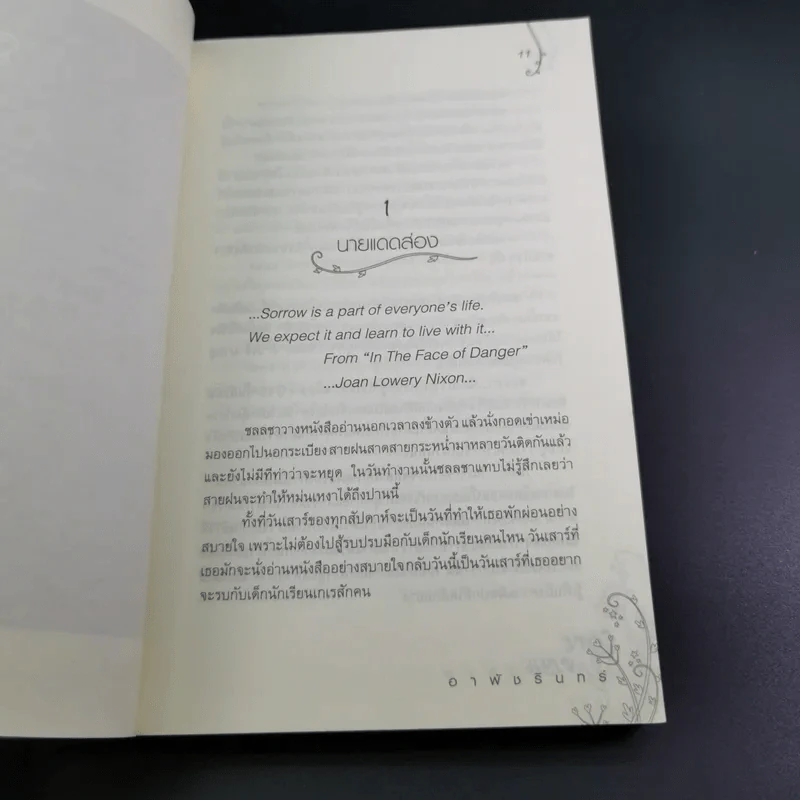 11
1
นายแดดส่อง
...Sorrow is a part of everyone's life.
We expect it and learn to live with it...
From "In The Face of Danger"
...Joan Lowery Nixon...
ชลลชาวางหนังสืออ่านนอกเวลาลงข้างตัว แล้วนั่งกอดเข่าเหม่อ
มองออกไปนอกระเบียง สายฝนสาดสายกระหน่ำมาหลายวันติดกันแล้ว
และยังไม่มีทีท่าว่าจะหยุด ในวันทำงานนั้นชลลชาแทบไม่รู้สึกเลยว่า
สายฝนจะทำให้หม่นเหงาได้ถึงปานนี้
ทั้งที่วันเสาร์ของทุกสัปดาห์จะเป็นวันที่ทำให้เธอพักผ่อนอย่าง
สบายใจ เพราะไม่ต้องไปสู้รบปรบมือกับเด็กนักเรียนคนไหน วันเสาร์ที่
เธอมักจะนั่งอ่านหนังสืออย่างสบายใจ กลับวันนี้เป็นวันเสาร์ที่เธออยาก
จะรบกับเด็กนักเรียนเกเรสักคน
อาพัชรินทร์